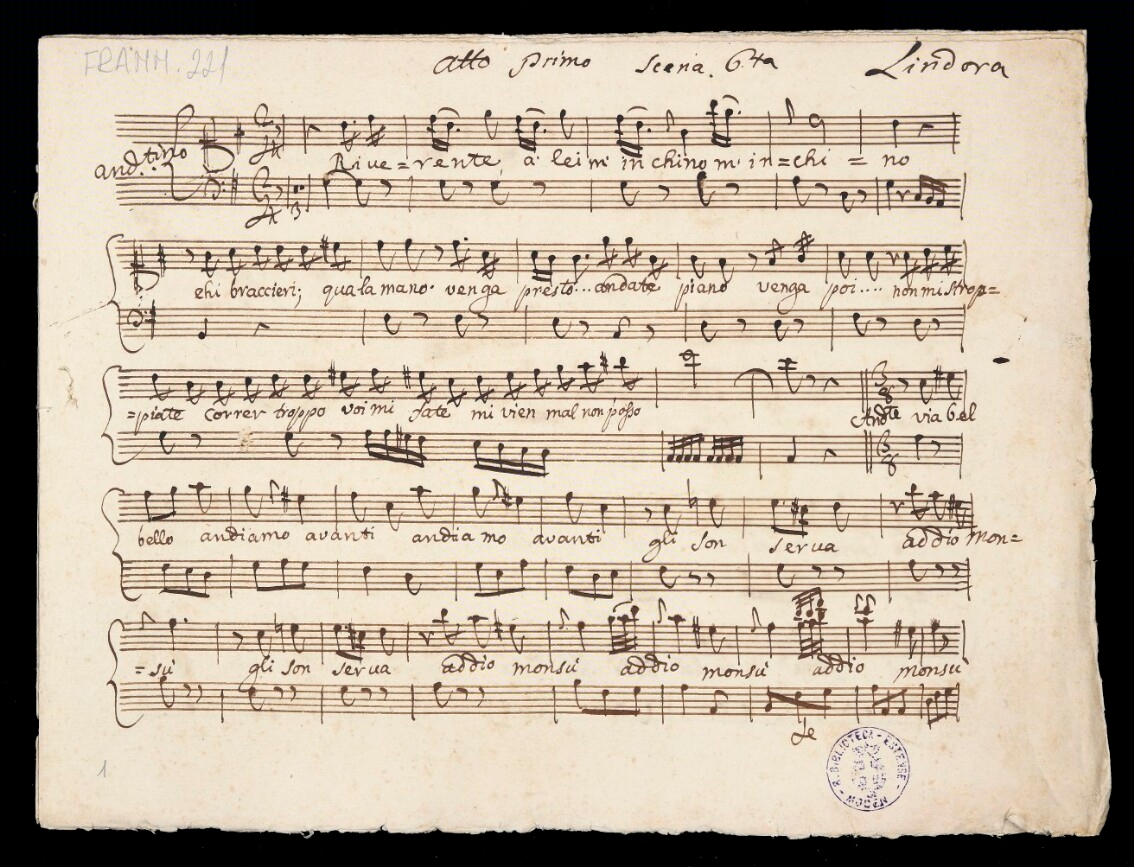 FRAMM. 221
Atto primo Scena. 6.ta Lindora
And.tino
Rive=rente a lei m'inchino m'in=chi=no
ehi braccieri; qua la mano. venga presto... andate piano venga poi.... non mi strop=
=piate correr troppo voi mi fate mi vien mal non posso And.te via bel
bello andiamo avanti andiamo avanti gli son serva addio mon=
=sù gli son serva addio monsù addio monsù addio monsù
R. BIBLIOTECA - ESTENSE - MODENA
1